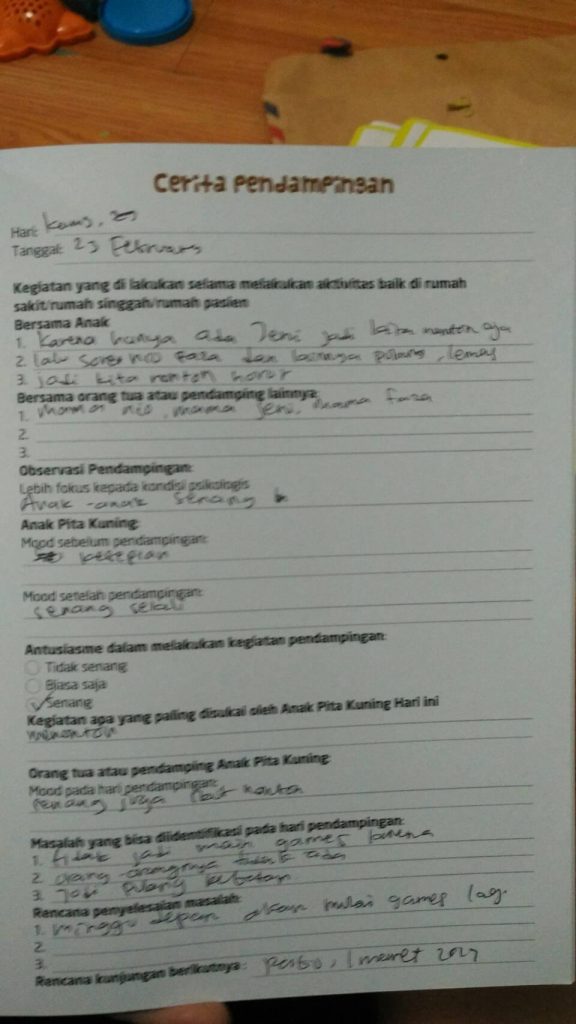 Cerita Pendampingan
Hari: Kamis, 23
Tanggal: 23 Februari
Kegiatan yang di lakukan selama melakukan aktivitas baik di rumah
sakit/rumah singgah/rumah pasien
Bersama Anak
1. Karena hanya ada Jeni jadi nonton aja
2. lalu sorenya dan lainnya pulang, lemas
3. jadi kita nonton horor
Bersama orang tua atau pendamping lainnya:
1. mama nio, mama Jeni, mama faza
2.
3.
Observasi Pendampingan:
Lebih fokus kepada kondisi psikologis
Anak-anak senang
Anak Pita Kuning:
Mood sebelum pendampingan:
kesepian
Mood setelah pendampingan:
senang sekali
Antusiasme dalam melakukan kegiatan pendampingan:
Tidak senang
Biasa saja
Senang
Kegiatan apa yang paling disukai oleh Anak Pita Kuning Hari ini
menonton
Orang tua atau pendamping Anak Pita Kuning:
Mood pada hari pendampingan:
senang juga nonton
Masalah yang bisa diidentifikasi pada hari pendampingan:
1. tidak jadi main games karena
2. orang-orangnya tidak ada
3. Jadi pulang
Rencana penyelesaian masalah:
1. minggu depan akan mulai games lagi
2.
3.
Rencana kunjungan berikutnya: Rabu, 1 maret 2017